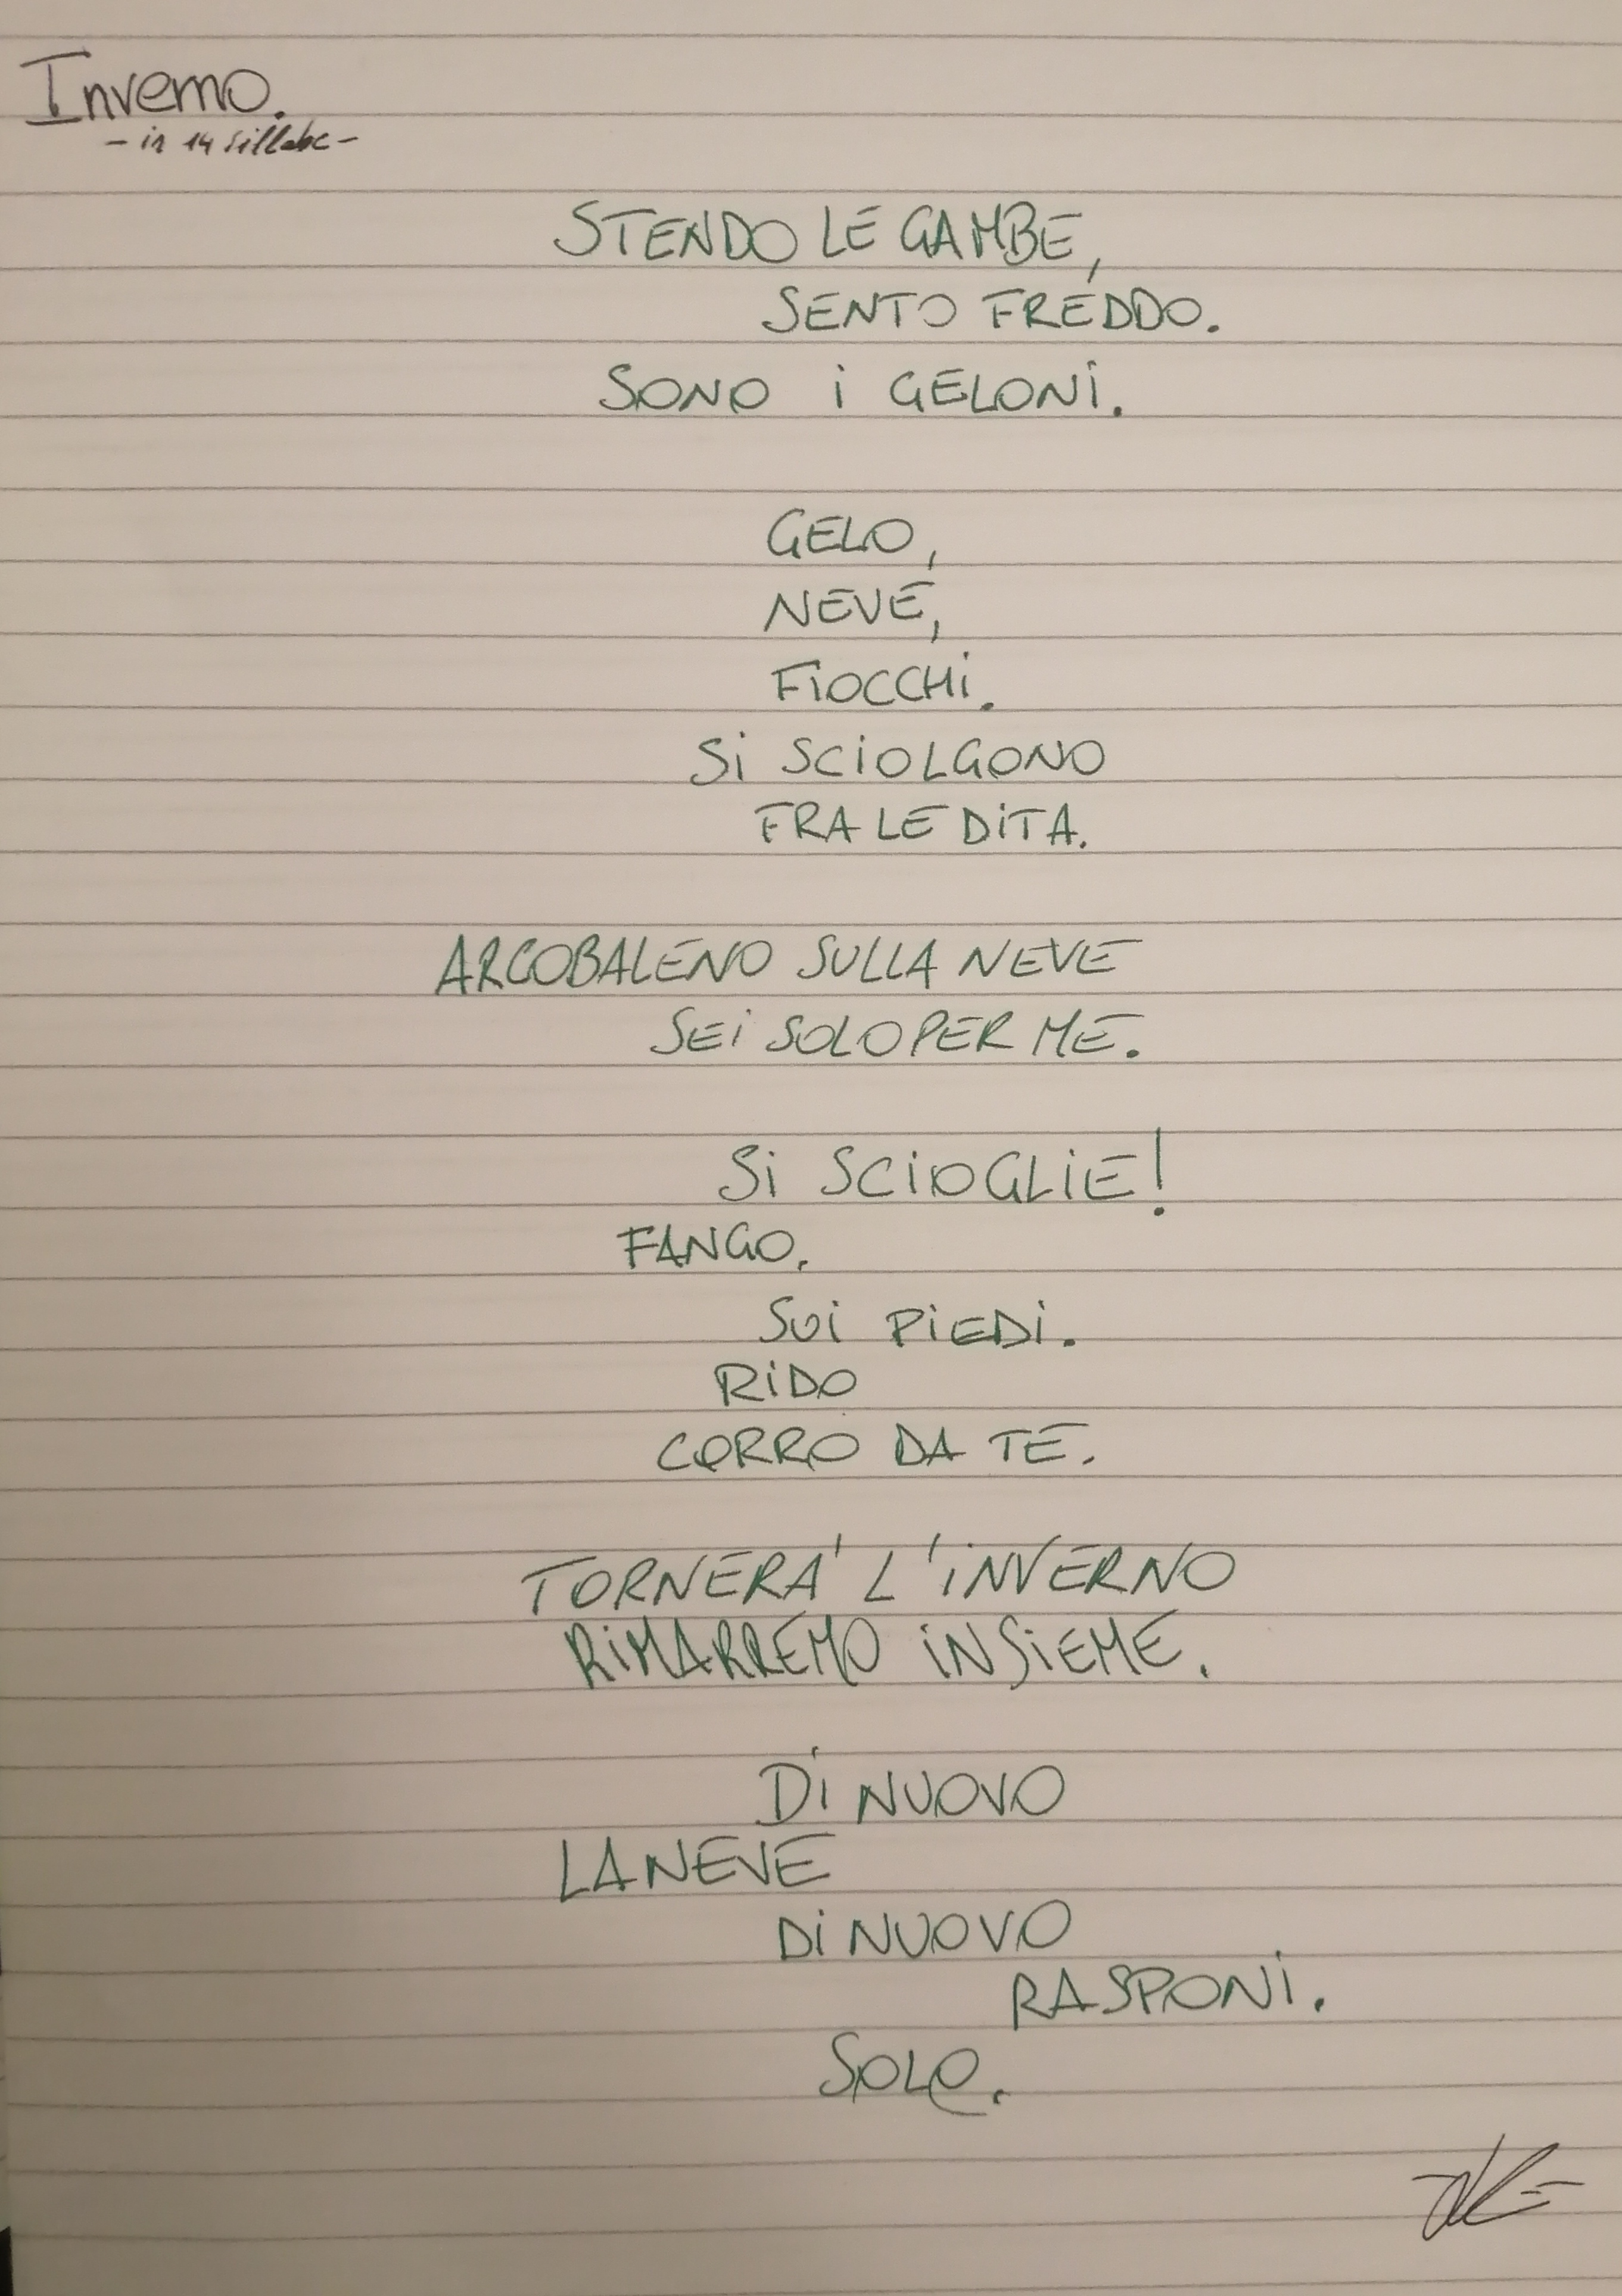 Inverno.
- in 14 sillabe -
STENDO LE GAMBE,
SENTO FREDDO.
SONO i GELONi.
GELO,
NEVE,
FiOCCHi.
Si SCiOLGONO
FRA LE DiTA.
ARCOBALENO SULLA NEVE
SEi SOLO PER ME.
Si SCiOGLiE!
FANGO.
SUi PiEDi.
RiDO
CORRO DA TE.
TORNERA' L'iNVERNO
RiMARREMO iNSiEME.
Di NUOVO
LA NEVE
Di NUOVO
RASPONi.
SOLO.